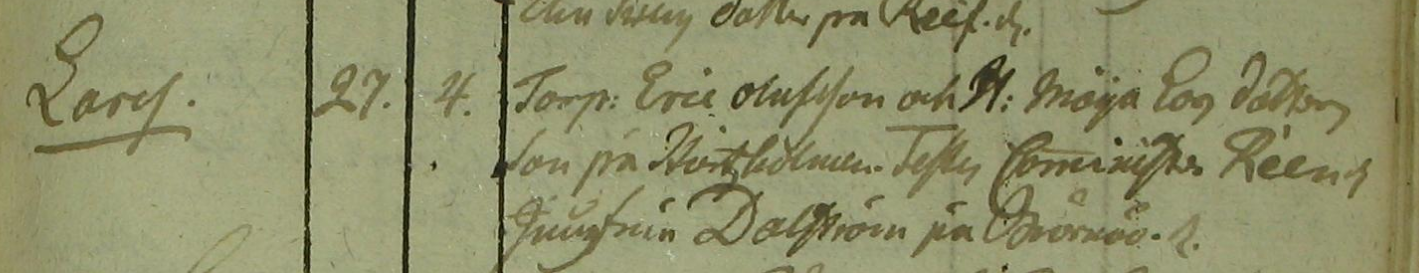 dotter på
Lars. 27. 4. Torp: Eric Olufsson och H: Maja Ers dotters
Son på Testes Comminister Réen &
Jungfrun Dalström på